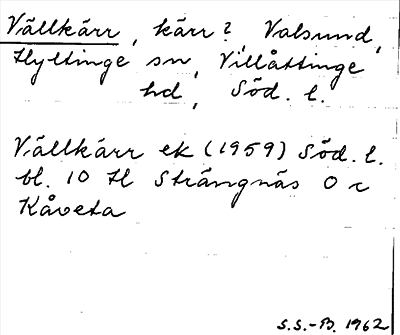 Vällkärr, kärr?, Valsund,
Hyltinge sn, Villåttinge
hd, Söd. l.
Vällkärr ek (1959) Söd. l.
bl. 10 H Strängnäs O c
Kåveta
S.S.-B. 1962